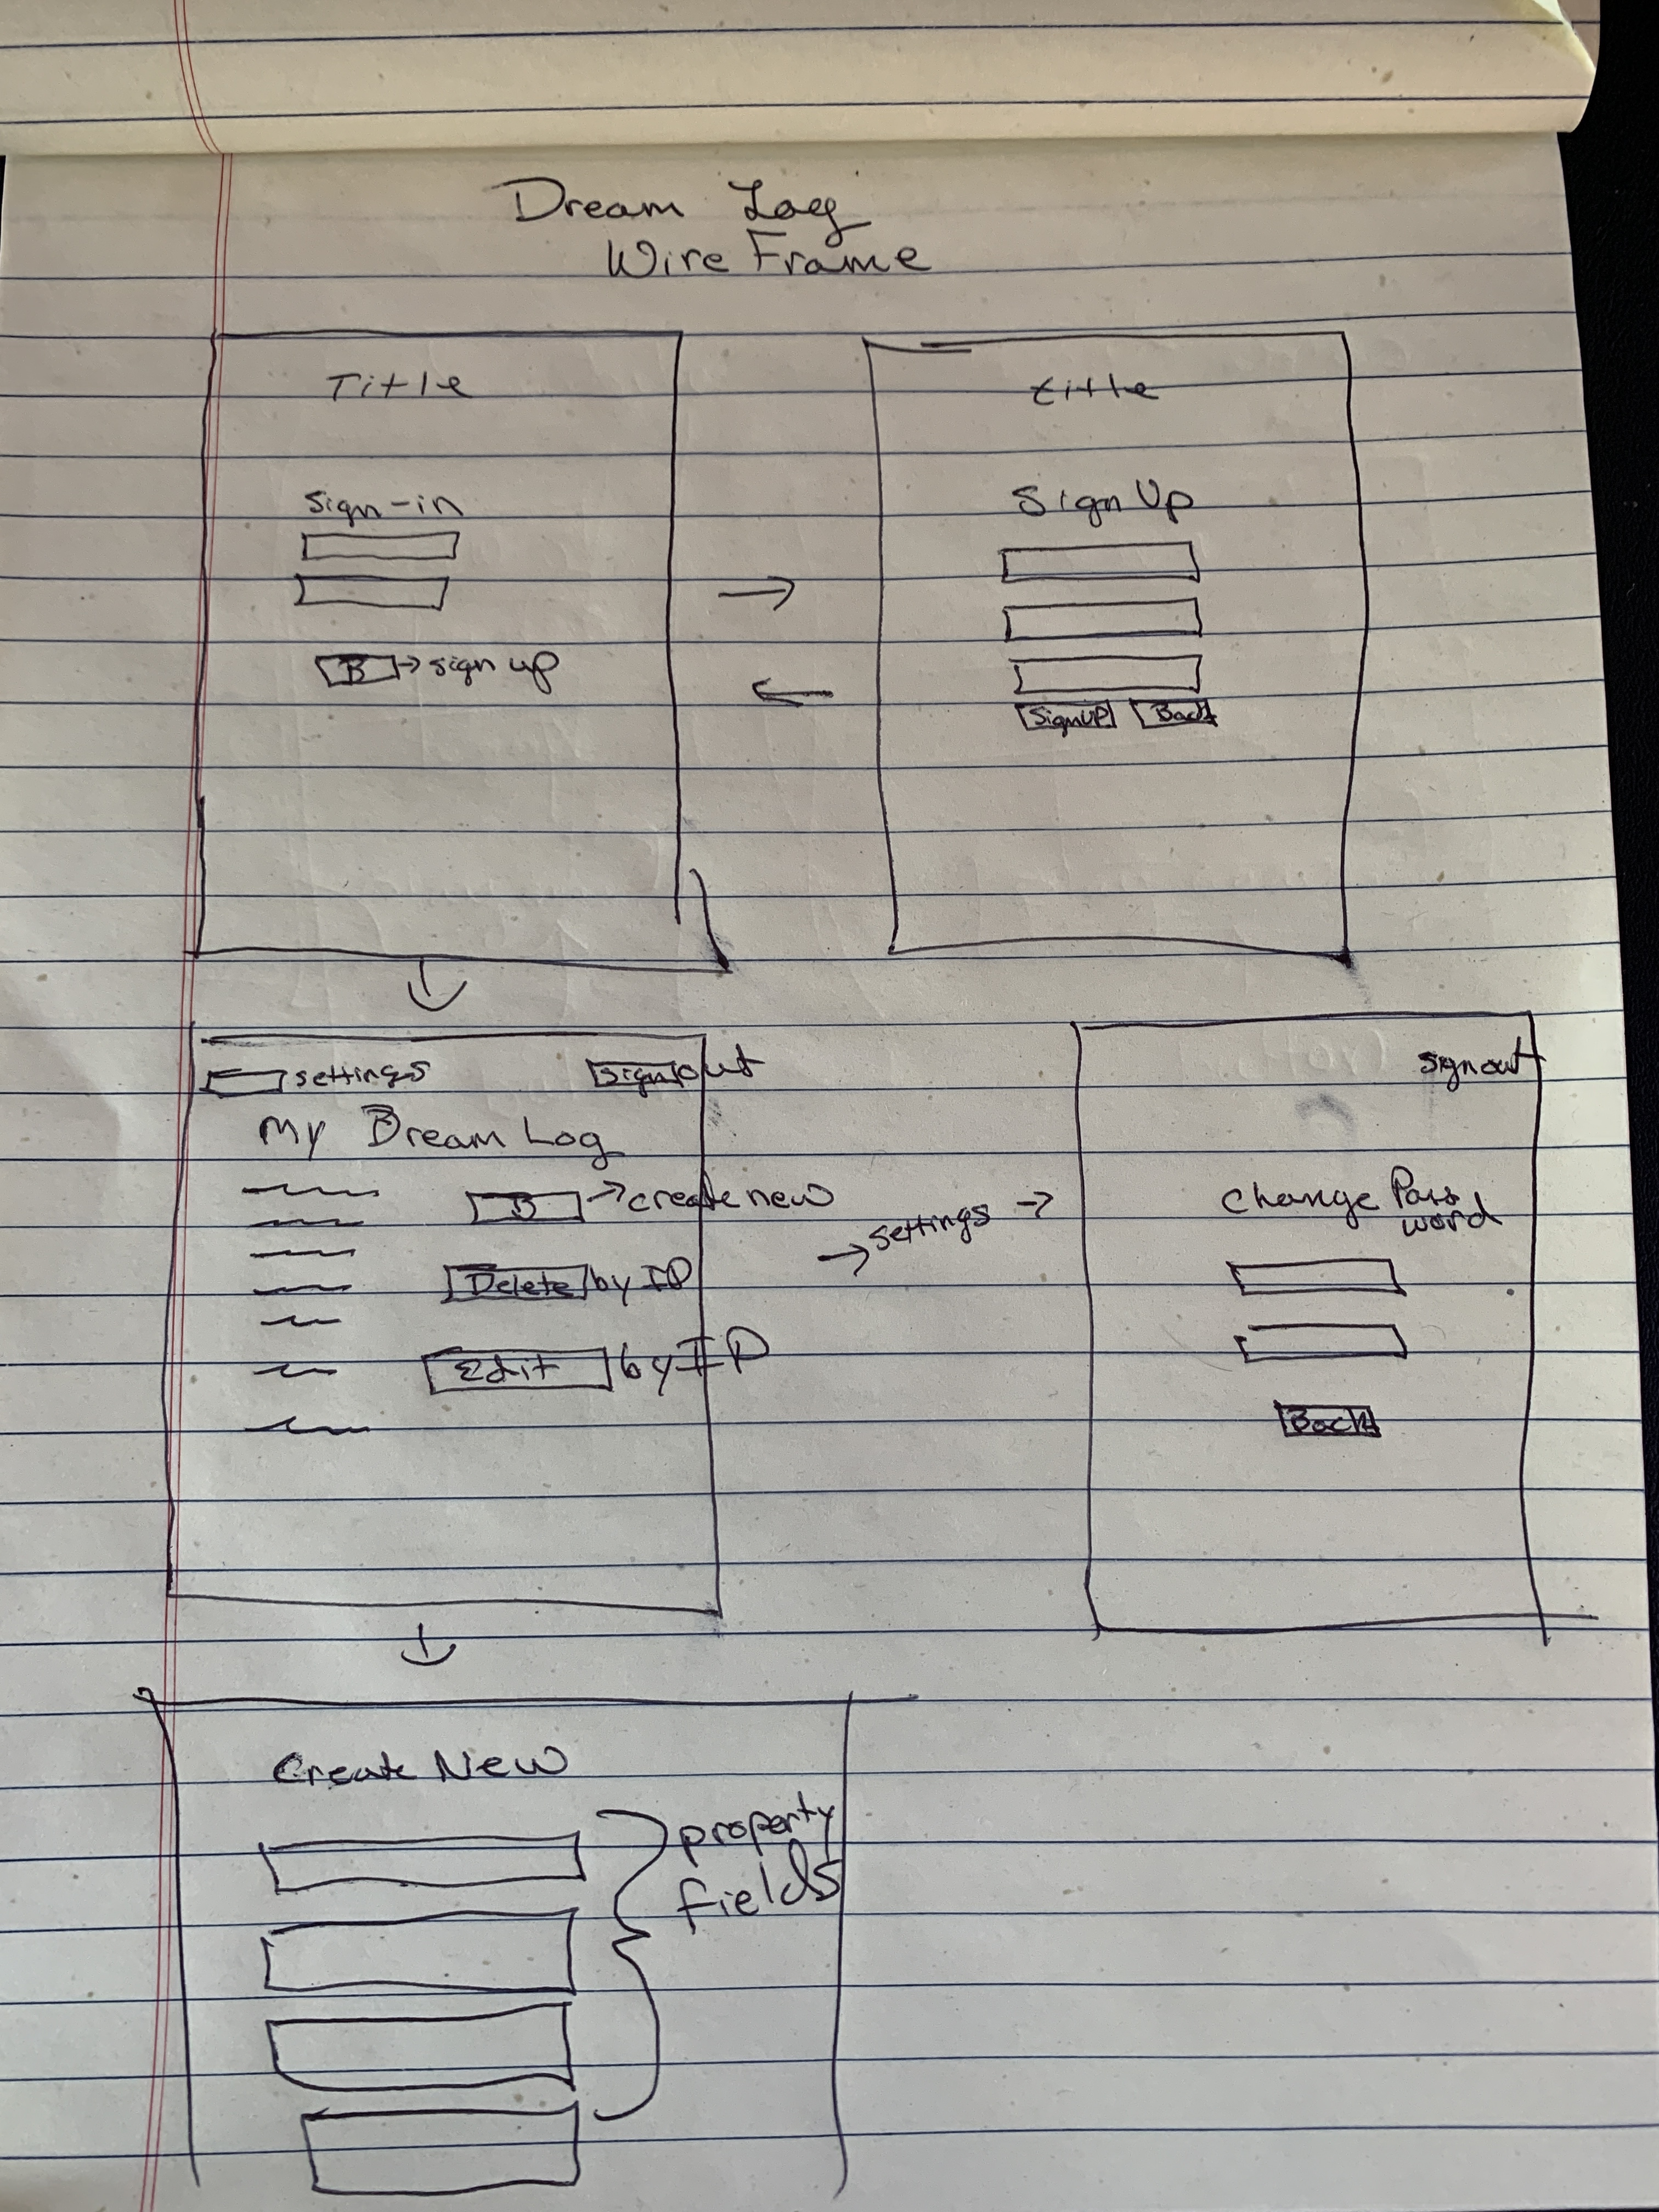 Dream Log
Wire Frame
Title
Sign-in
B → sign up
title
Sign Up
SignUP Back
settings Sign out
My Dream Log
B → create new
Delete by ID
Edit by ID
→ settings →
sign out
Change Pass
word
Back
Create New
property
fields